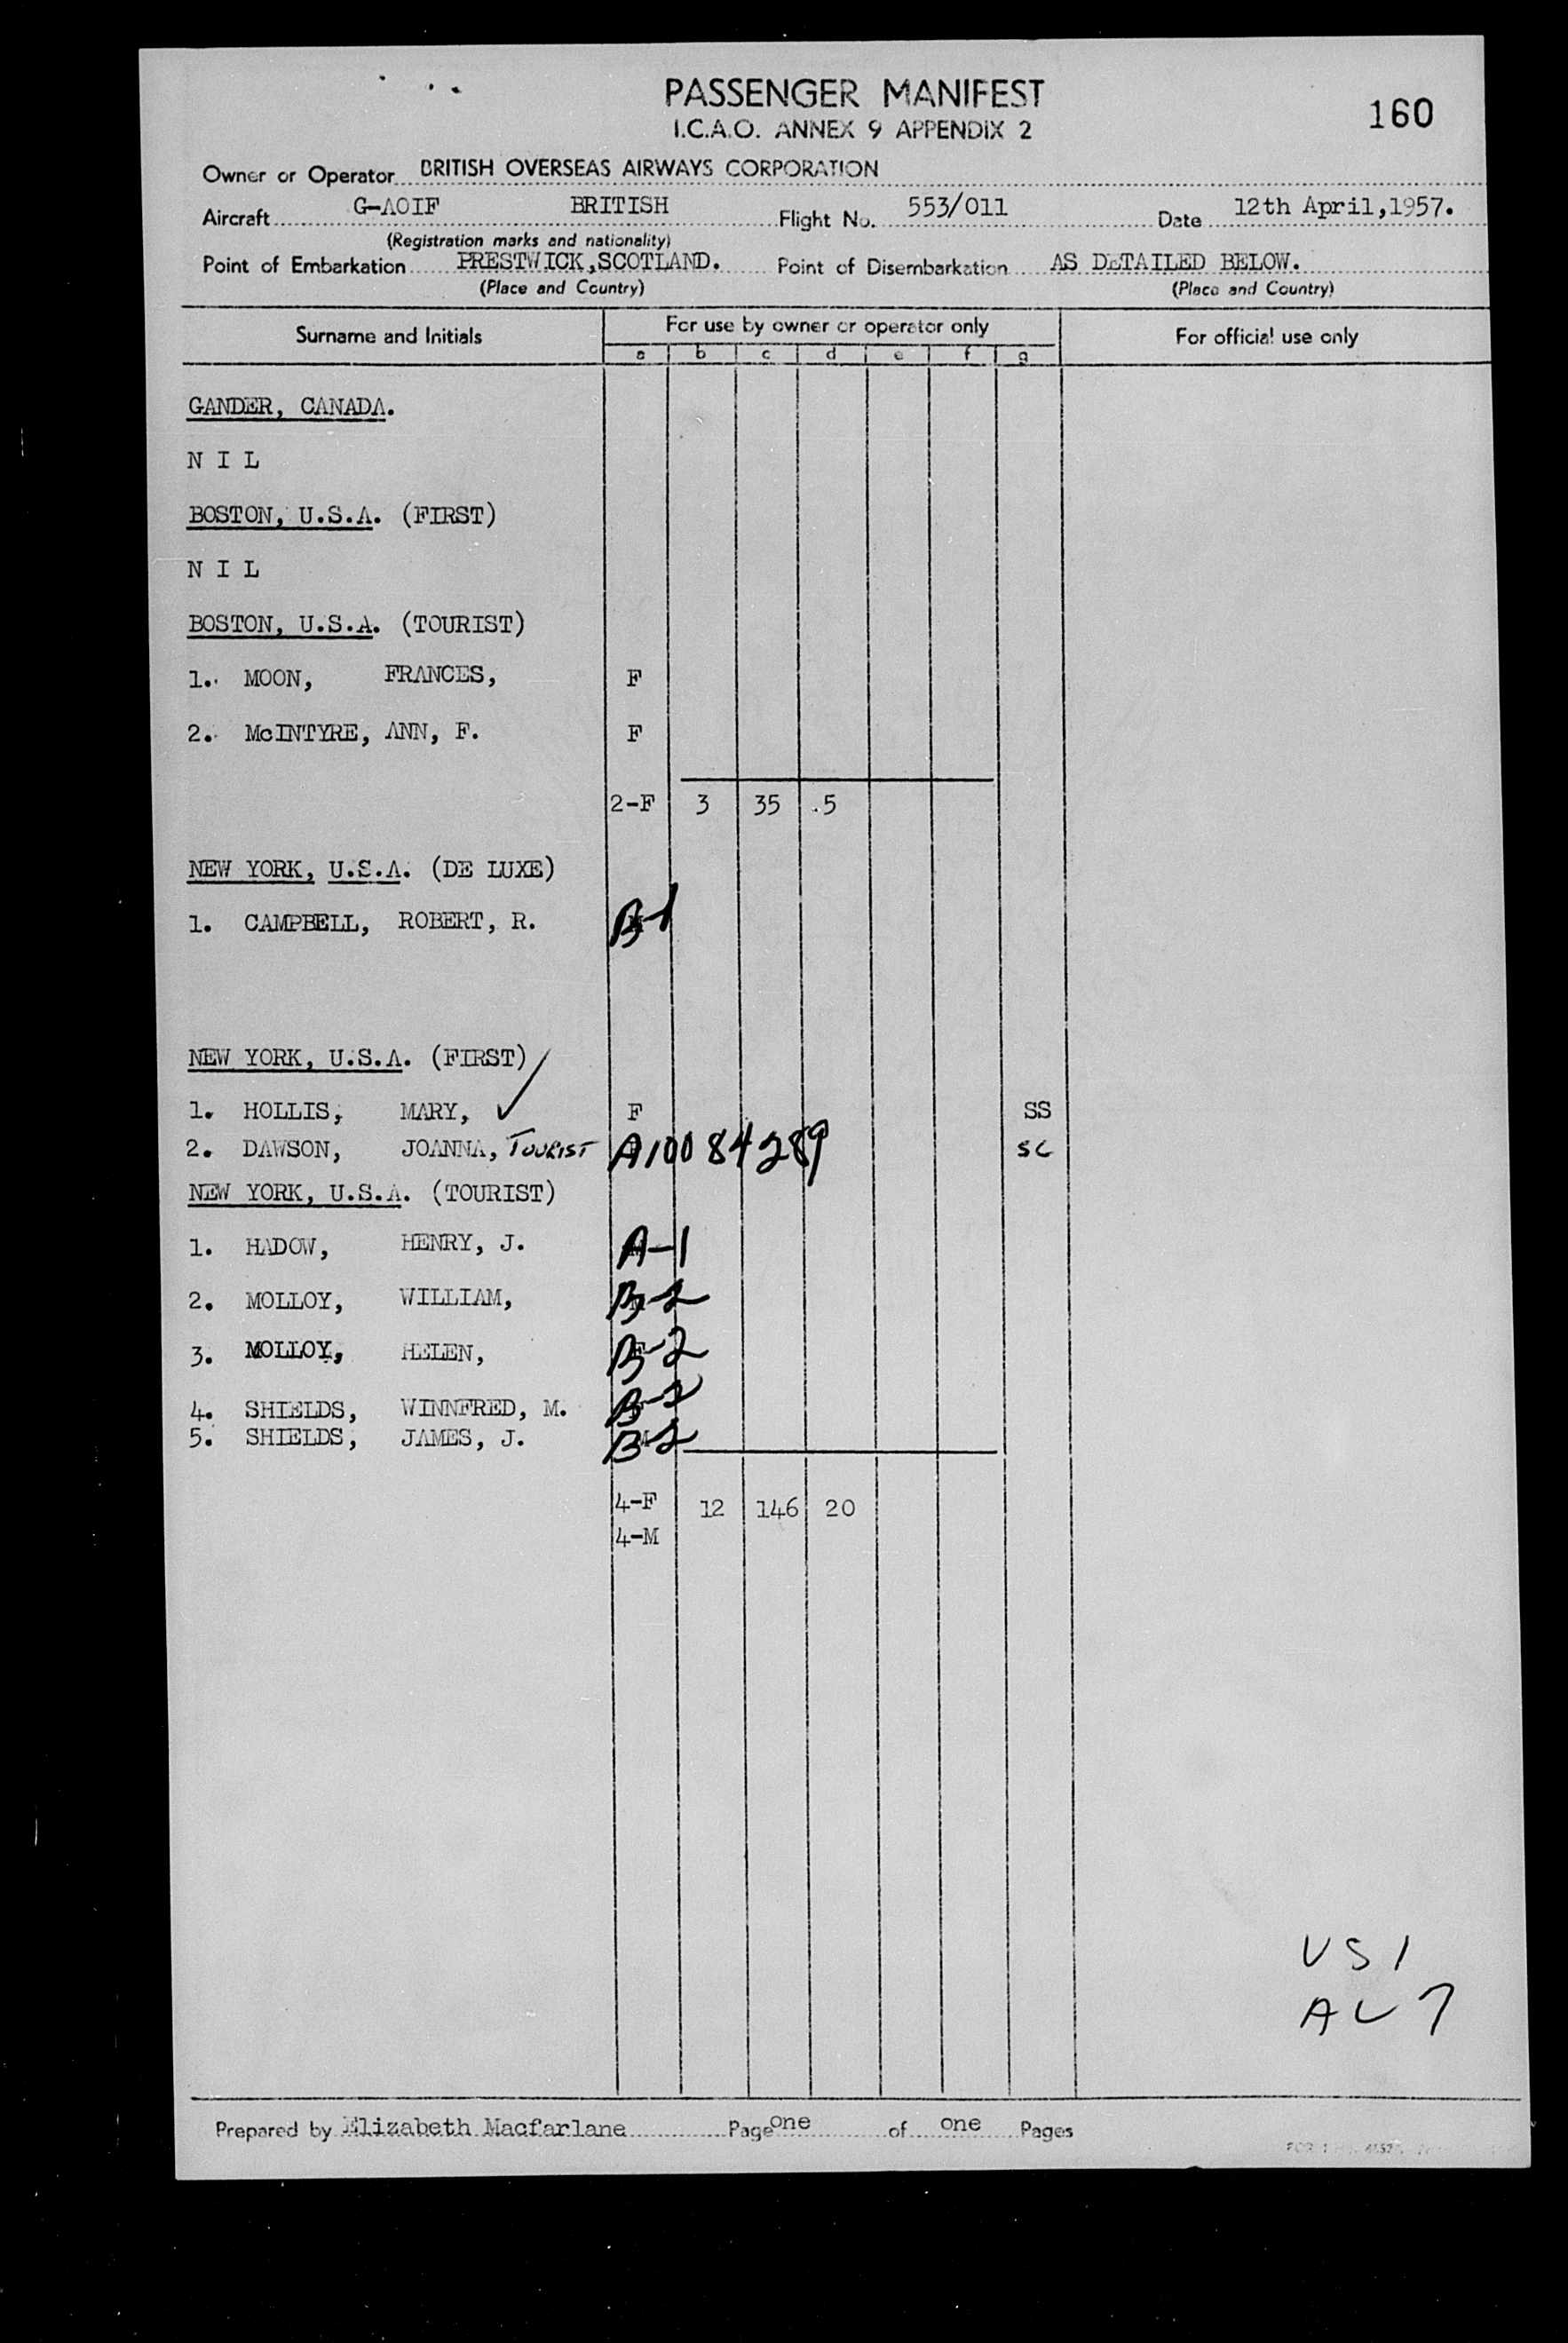 PASSENGER MANIFEST
I.C.A.O. ANNEX 9 APPENDIX 2
160
Owner or Operator BRITISH OVERSEAS AIRWAYS CORPORATION
Aircraft G-AOIF BRITISH Flight No. 553/011 Date 12th April,1957.
(Registration marks and nationality)
Point of Embarkation PRESTWICK,SCOTLAND. Point of Disembarkation AS DETAILED BELOW.
(Place and Country) (Place and Country)
Surname and Initials For use by owner or operator only For official use only
a b c d e f g
GANDER, CANADA.
N I L
BOSTON, U.S.A. (FIRST)
N I L
BOSTON, U.S.A. (TOURIST)
1. MOON, FRANCES, F
2. McINTYRE, ANN, F. F
2-F 3 35 .5
NEW YORK, U.S.A. (DE LUXE)
1. CAMPBELL, ROBERT, R. B-1
NEW YORK, U.S.A. (FIRST)
1. HOLLIS, MARY, F SS
2. DAWSON, JOANNA, TOURIST A10084289 SC
NEW YORK, U.S.A. (TOURIST)
1. HADOW, HENRY, J. A-1
2. MOLLOY, WILLIAM, B-2
3. MOLLOY, HELEN, B-2
4. SHIELDS, WINNFRED, M. B-2
5. SHIELDS, JAMES, J. B-2
4-F 12 146 20
4-M
US 1
AL 7
Prepared by Elizabeth Macfarlane Page one of one Pages